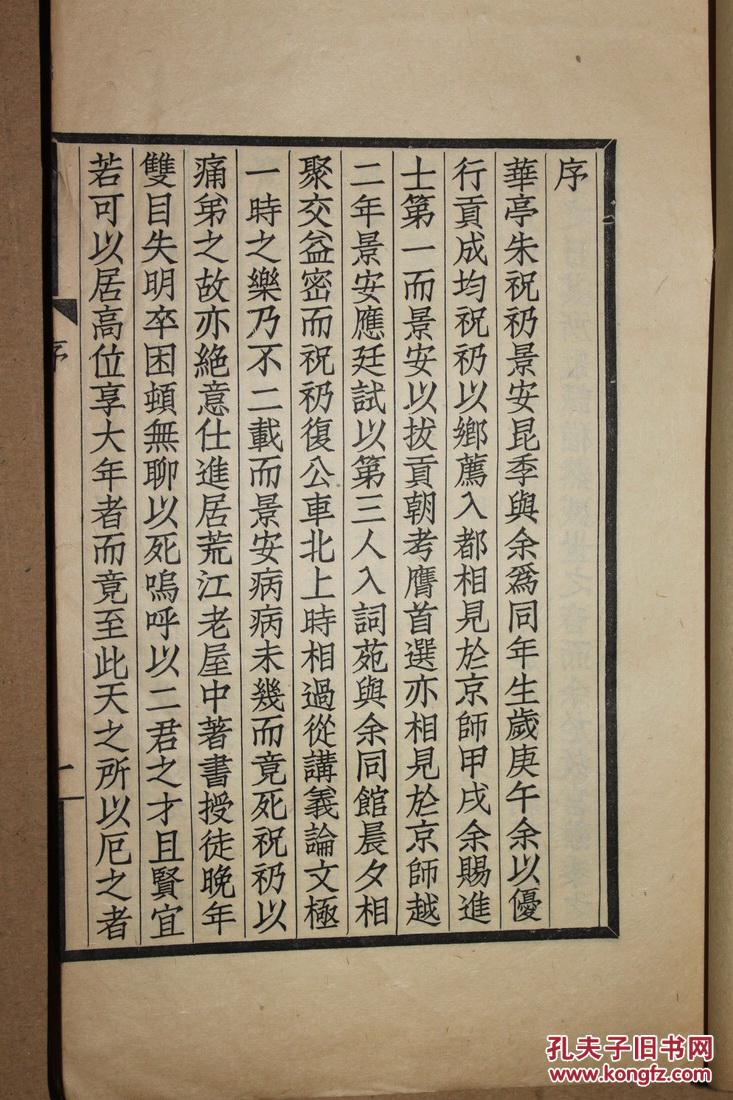 序
華亭朱祝礽景安昆季與余爲同年生歲庚午余以優
行貢成均祝礽以鄉薦入都相見於京師甲戌余賜進
士第一而景安以拔貢朝考膺首選亦相見於京師越
二年景安應廷試以第三人入詞苑與余同館晨夕相
聚交益密而祝礽復公車北上時相過從講義論文極
一時之樂乃不二載而景安病病未幾而竟死祝礽以
痛弟之故亦絕意仕進居荒江老屋中著書授徒晚年
雙目失明卒困頓無聊以死嗚呼以二君之才且賢宜
若可以居高位享大年者而竟至此天之所以厄之者
序
一
孔夫子旧书网
www.kongfz.com